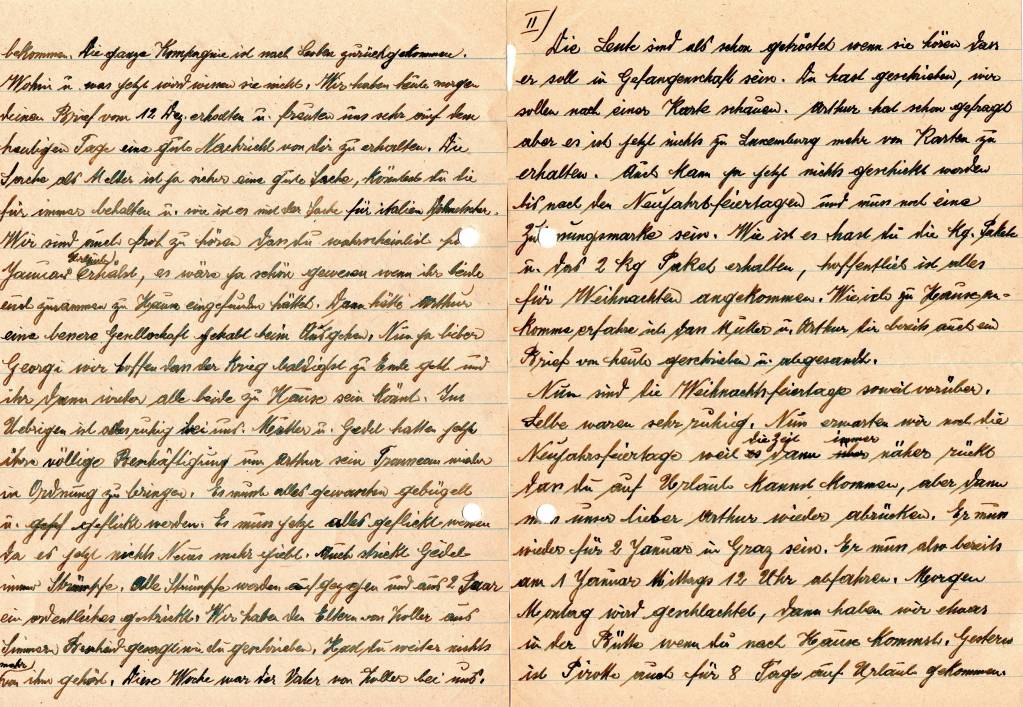 bekommen. Die ganze Kompagnie ist nach Leoben zurückgekommen.
Wohin u. was jetzt wird wissen sie nicht. Wir haben heute morgen
deinen Brief vom 12 Dez. erhalten u. freuten uns sehr auf dem
heutigen Tage eine gute Nachricht von dir zu erhalten. Die
Sache als Melder ist ja sicher eine gute Sache, könntest du die
für immer behalten u. wie ist es mit der Sache für italien Dolmetscher.
Wir sind auch froh zu hören dass du wahrscheinlich
Januar Urlaub erhälst, es wäre ja schön gewesen wenn ihr beide
euch zusammen zu Hause eingefunden hättet. Dann hätte Arthur
eine bessere Gesellschaft gehabt beim Ausgehen. Nun ja lieber
Georgi wir hoffen dass der Krieg baldigst zu Ende geht und
ihr dann wieder alle beide zu Hause sein könnt. Im
Uebrigen ist alles ruhig bei uns. Mutter u. Gedel hatten jetzt
ihre völlige Beschäftigung um Arthur sein Trousseau wieder
in Ordnung zu bringen. Es musst alles gewaschen gebügelt
u. geflickt werden. Es muss jetzt alles geflickt werden
da es jetzt nichts Neues mehr giebt. Auch strickt Gedel
immer Strümpfe. Alle Strümpfe werden aufgezogen und aus 2 Paar
ein ordentliches gestrickt. Wir haben den Eltern von Koller aus
Simmern Bescheid gesagt wie du geschrieben. Hast du weiter nichts
mehr
von ihm gehört. Diese Woche war der Vater von Koller bei uns.
II)
Die Leute sind als schon getröstet wenn sie hören dass
er soll in Gefangenschaft sein. Du hast geschrieben, wir
sollen nach einer Karte schauen. Arthur hat schon gefragt
aber es ist jetzt nichts zu Luxemburg mehr von Karten zu
erhalten. Auch kann ja jetzt nichts geschickt werden
bis nach den Neujahrsfeiertagen und muss noch eine
Zulassungsmarke sein. Wie ist es hast du die Kg. Pakete
u. das 2 kg Paket erhalten, hoffentlich ist alles
für Weihnachten angekommen. Wie ich zu Hause an-
komme erfahre ich dass Mutter u. Arthur dir bereits auch ein
Brief von heute geschrieben u. abgesandt.
Nun sind die Weihnachtsfeiertage soweit vorüber.
Selbe waren sehr ruhig. Nun erwarten wir noch die
Neujahrsfeiertage weil die Zeit dann immer näher rückt
dass du auf Urlaub kannst kommen, aber dann
muss unser lieber Arthur wieder abrücken. Er muss
wieder für 2 Januar in Graz sein. Er muss also bereits
am 1 Januar Mittags 12 Uhr abfahren. Morgen
Montag wird geschlachtet, dann haben wir etwas
in der Bütte wenn du nach Hause kommst. Gestern
ist Pirotte auch für 8 Tage auf Urlaub gekommen.